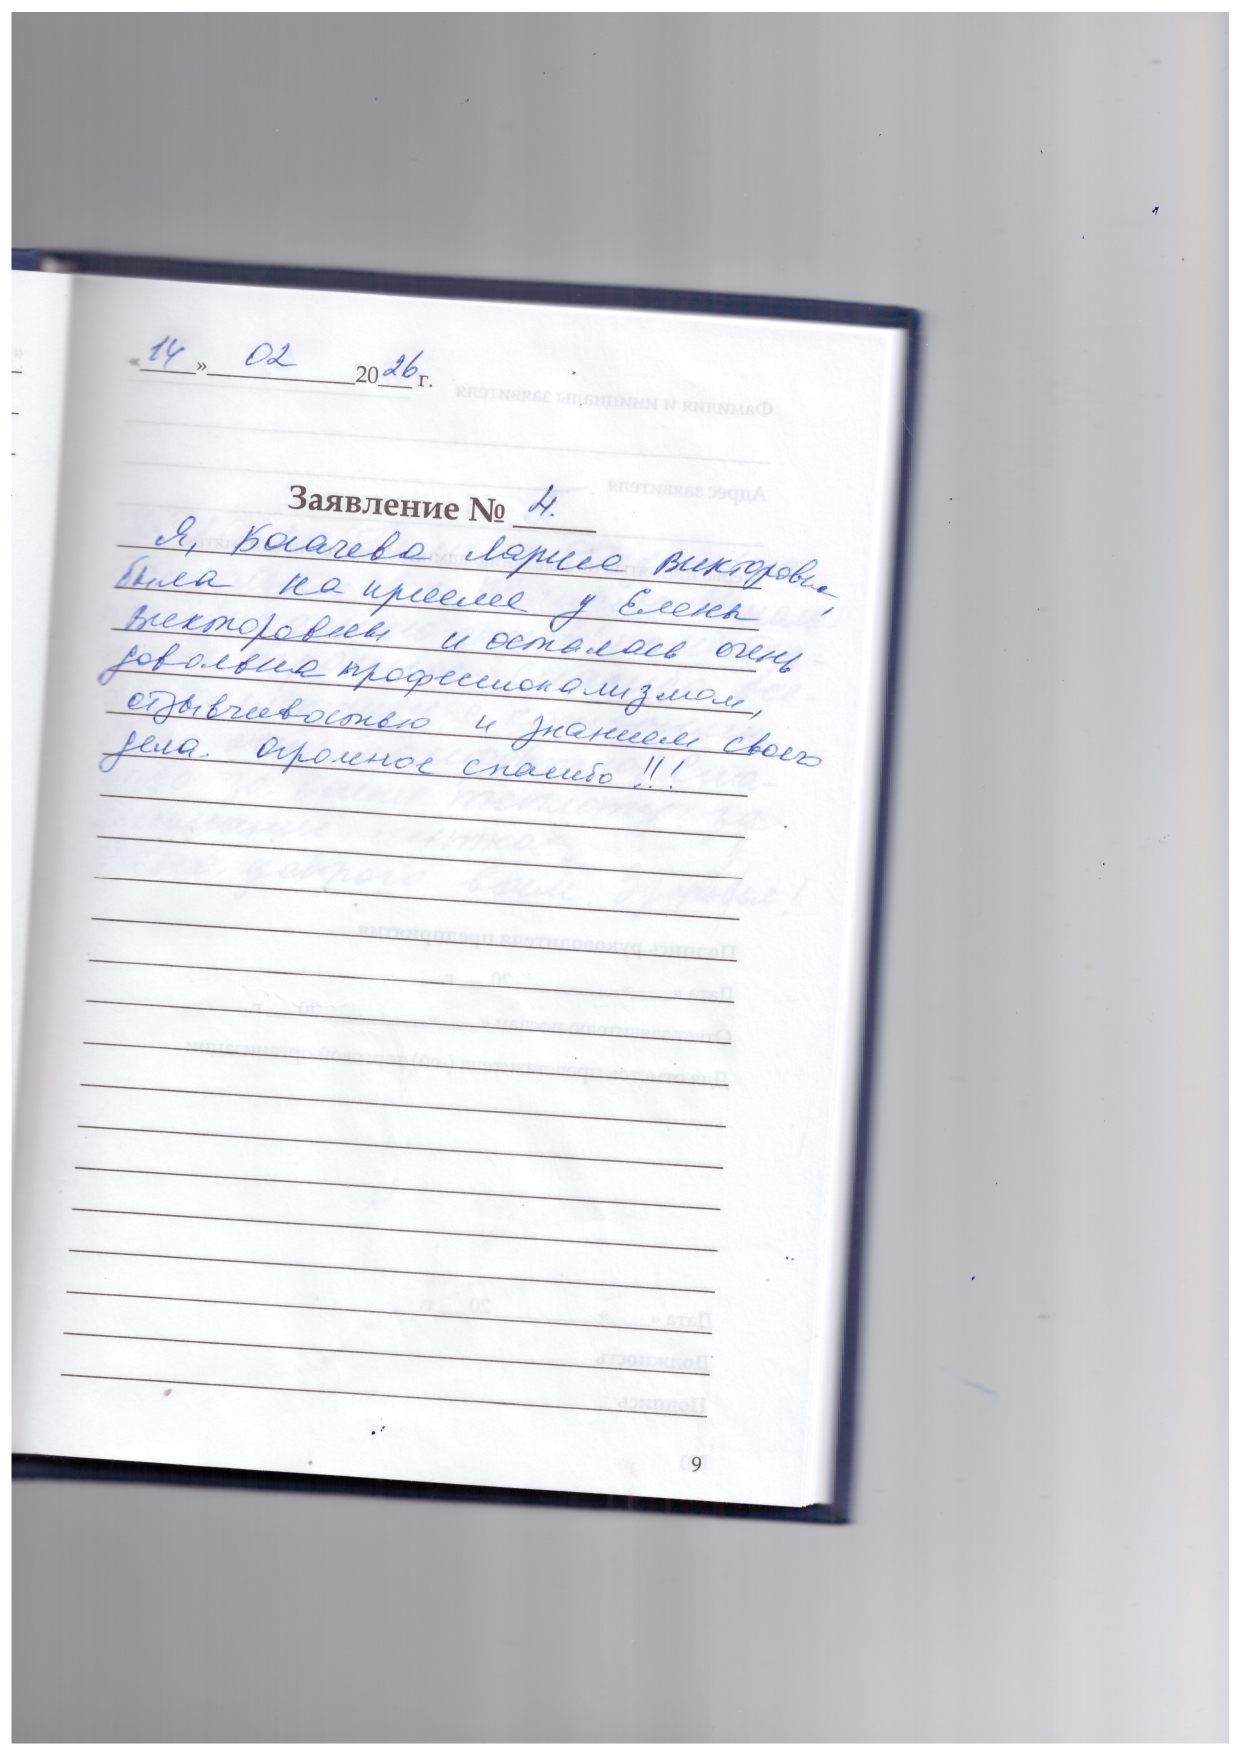 «14» 02 2026 г.
Заявление № 4.
Я, Богачева Лариса Викторовна,
была на приеме у Елены
Викторовны и осталась очень
довольна профессионализмом,
отзывчивостью и знанием своего
дела. Огромное спасибо !!!
9